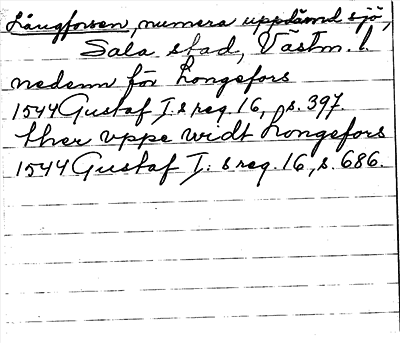 Långforsen, numera uppdämd sjö,
Sala stad, Västm. l.
nedenn för Longefors
1544 Gustaf I:s reg. 16, s. 397.
ther vppe widt Longefors
1544 Gustaf I: s reg. 16, s. 686.